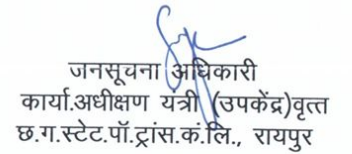 जनसूचना अधिकारी
कार्या.अधीक्षण यंत्री (उपकेंद्र)वृत्त
छ.ग.स्टेट.पॉ.ट्रांस.कं.लि., रायपुर